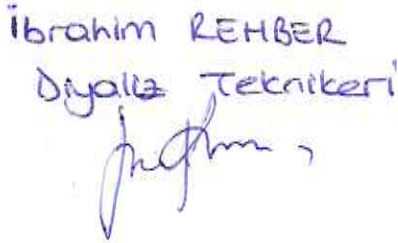 İbrahim REHBER
Diyaliz Teknikeri